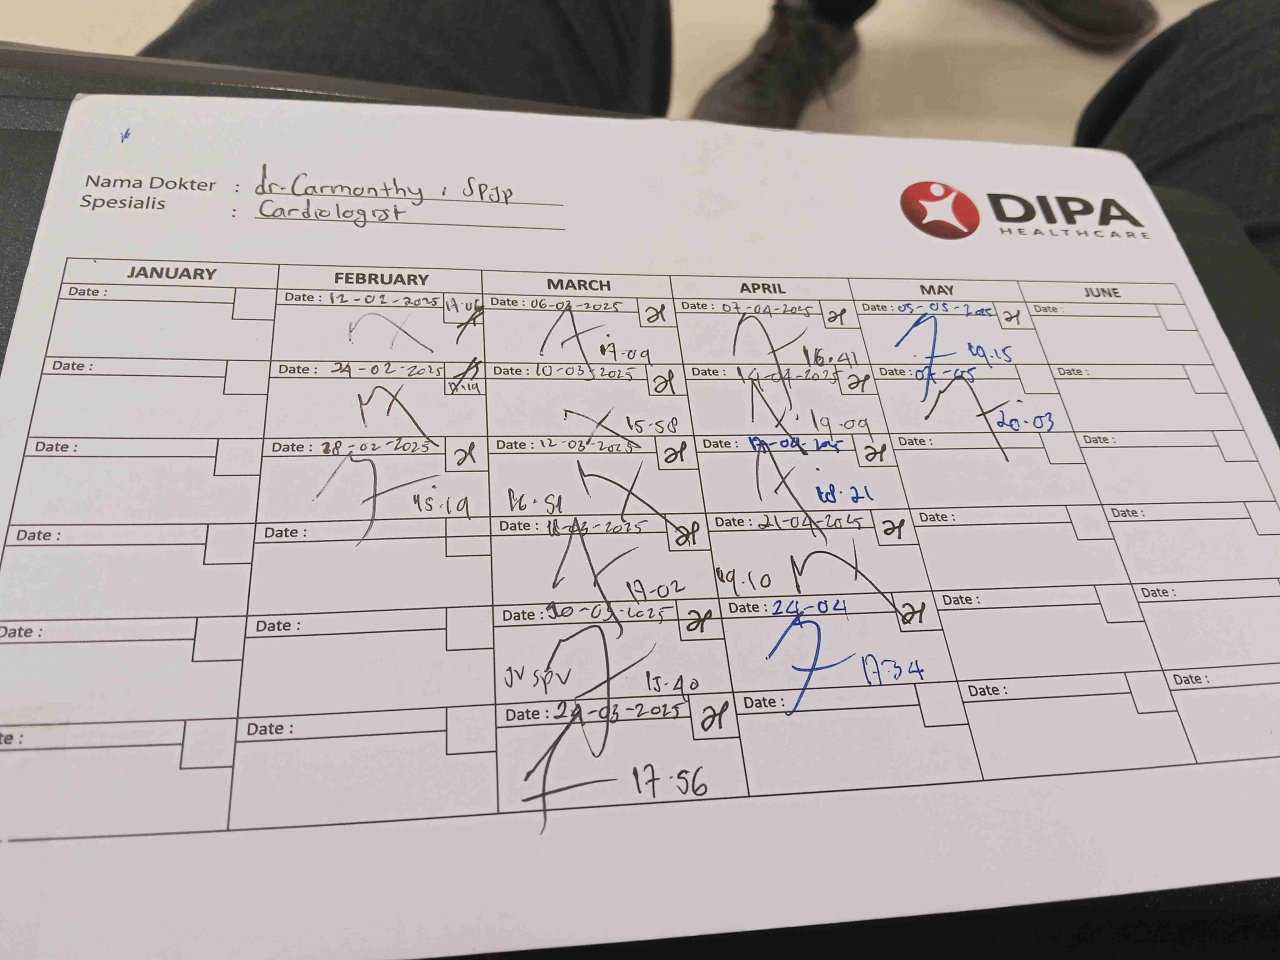 Nama Dokter : dr. Carmonthy, SPJP
Spesialis : Cardiologist
DIPA
HEALTHCARE
JANUARY FEBRUARY MARCH APRIL MAY JUNE
Date : Date : 12-02-2025 17.06 Date : 06-03-2025 Date : 07-04-2025 Date : 05-05-2025 Date :
17.09 16.41 19.15
Date : Date : 24-02-2025 17.19 Date : 10-03-2025 Date : 14-04-2025 Date : 07-05 Date :
15.58 19.09 20.03
Date : Date : 28-02-2025 Date : 12-03-2025 Date : 17-04-2025 Date : Date :
15.19 16.51 18.21
Date : Date : 18-03-2025 Date : 21-04-2025 Date : Date :
17.02 19.10
Date : Date : Date : 20-03-2025 Date : 24-04 Date : Date :
JV SPV 15.40 17.34
Date : Date : Date : 24-03-2025 Date : Date : Date :
17.56